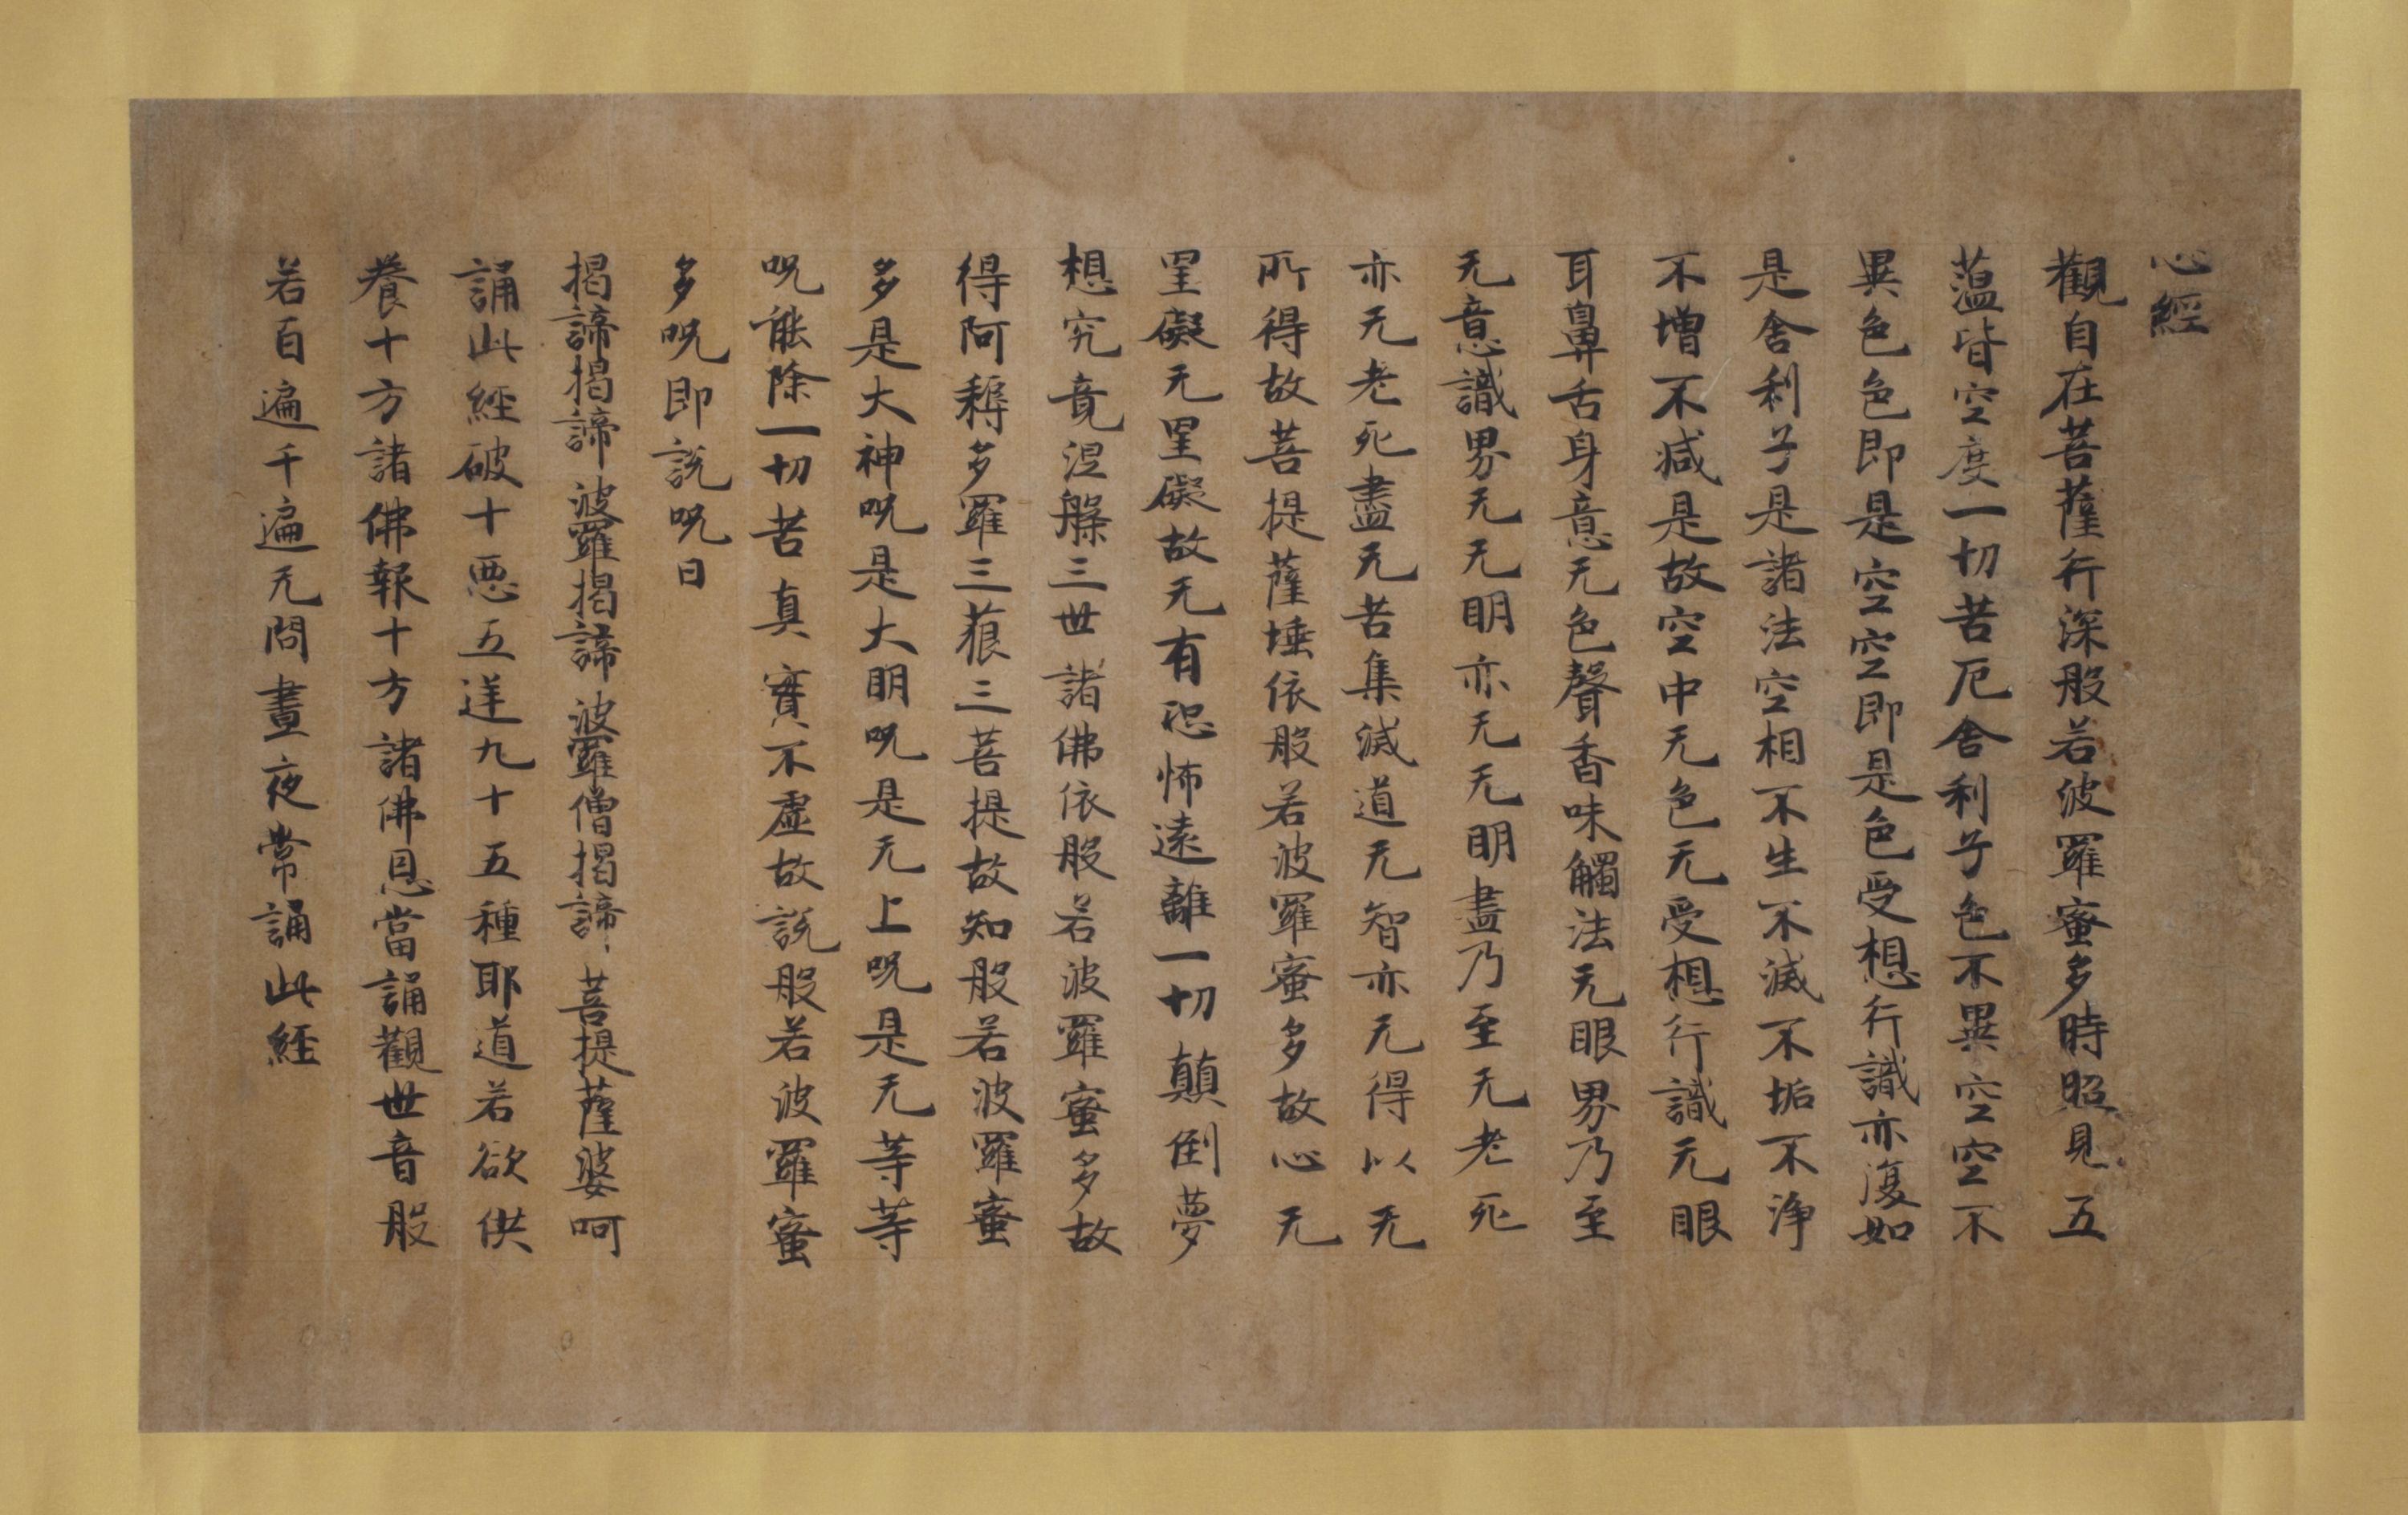 心經
觀自在菩薩行深般若波羅蜜多時照見五
薀皆空度一切苦厄舍利子色不異空空不
異色色即是空空即是色受想行識亦復如
是舍利子是諸法空相不生不滅不垢不淨
不增不減是故空中无色无受想行識无眼
耳鼻舌身意无色聲香味觸法无眼界乃至
无意識界无无明亦无无明盡乃至无老死
亦无老死盡无苦集滅道无智亦无得以无
所得故菩提薩埵依般若波羅蜜多故心无
罣礙无罣礙故无有恐怖遠離一切顛倒夢
想究竟涅槃三世諸佛依般若波羅蜜多故
得阿耨多羅三藐三菩提故知般若波羅蜜
多是大神呪是大明呪是无上呪是无等等
呪能除一切苦真實不虛故說般若波羅蜜
多呪即說呪曰
揭諦揭諦波羅揭諦波羅僧揭諦菩提薩婆呵
誦此經破十惡五逆九十五種耶道若欲供
養十方諸佛報十方諸佛恩當誦觀世音般
若百遍千遍无問晝夜常誦此經